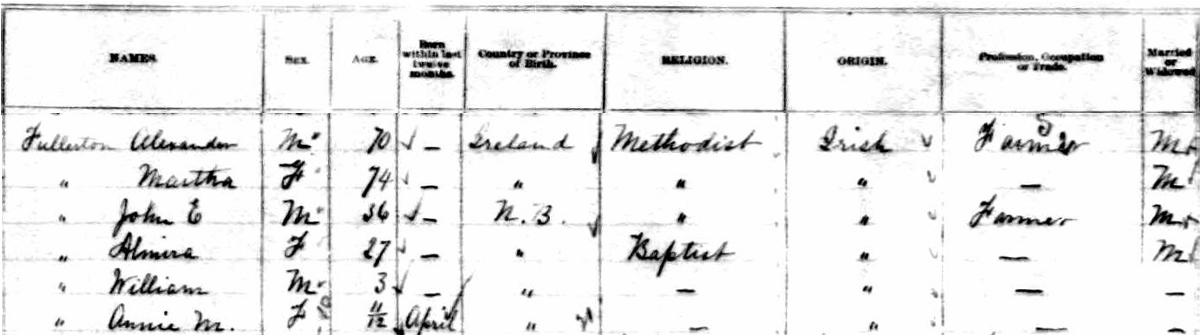 NAMES. SEX. AGE. Born within last twelve months. Country or Province of Birth. RELIGION. ORIGIN. Profession, Occupation or Trade. Married or Widowed
Fullerton Alexander M 70 — Ireland Methodist Irish Farmer M
" Martha F 74 — " " " — M
" John E M 36 — N.B. " " Farmer M
" Almira F 27 — " Baptist " — M
" William M 3 — " — " — —
" Annie M. F 11/12 April " — " — —